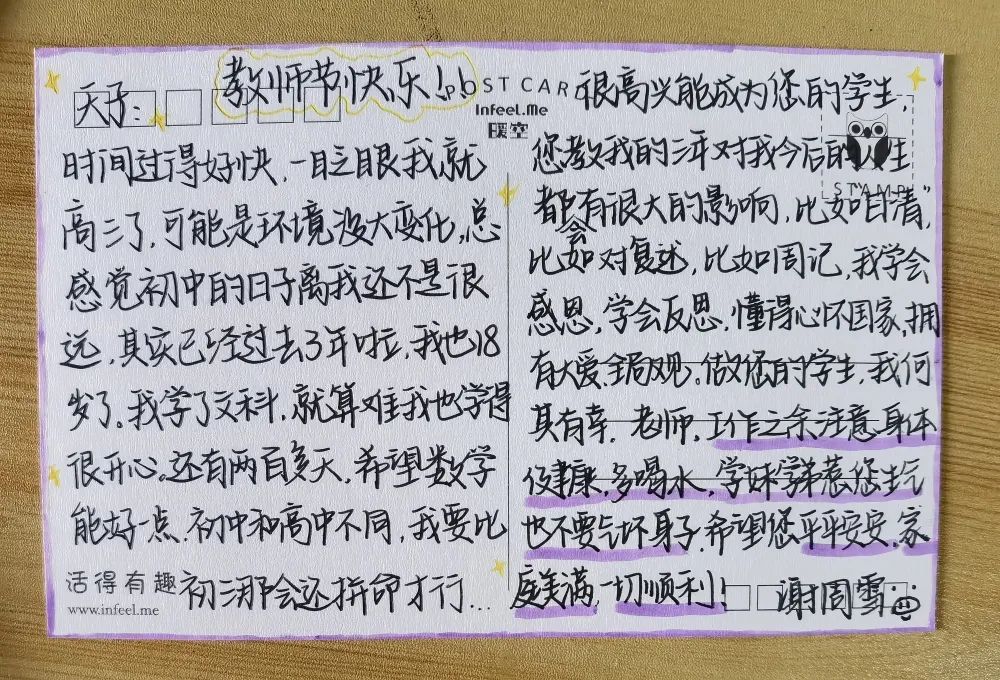 教师节快乐！
POST CARD
Infeel.Me
暖空
天子：
时间过得好快，一眨眼我就
高三了，可能是环境没大变化，总
感觉初中的日子离我还不是很
远，其实已经过去3年啦，我也18
岁了。我学了文科，就算难我也学得
很开心。还有两百多天，希望数学
能好一点，初中和高中不同，我要比
初三那会还拼命才行...
活得有趣
www.infeel.me
很高兴能成为您的学生，
您教我的三年对我今后的人生
都会有很大的影响，比如日清，
比如对复述，比如周记，我学会
感恩，学会反思，懂得心怀国家，拥
有大爱全局观。做您的学生，我何
其有幸，老师，工作之余注意身体
健康，多喝水，学妹学弟惹您生气
也不要气坏身子，希望您平平安安，家
庭美满，一切顺利！
谢周雪
STAMP